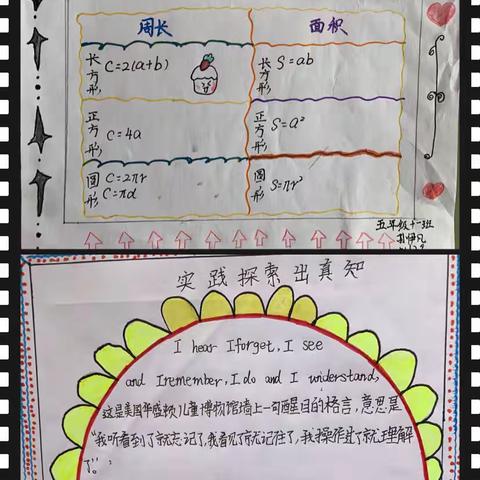 周长 面积
长方形 C=2(a+b) 长方形 S=ab
正方形 C=4a 正方形 S=a²
圆形 C=2πr 圆形 S=πr²
C=πd
五年级十一班
实践探索出真知
I hear I forget, I see
and I remember, I do and I understand,
这是美国华盛顿儿童博物馆墙上一句醒目的格言,意思是
“我听看到了就忘记了,我看见了就记住了,我操作过了就理解
了”。